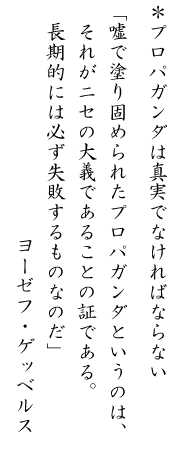 ＊プロパガンダは真実でなければならない
「嘘で塗り固められたプロパガンダというのは、
それがニセの大義であることの証である。
長期的には必ず失敗するものなのだ」
ヨーゼフ・ゲッベルス